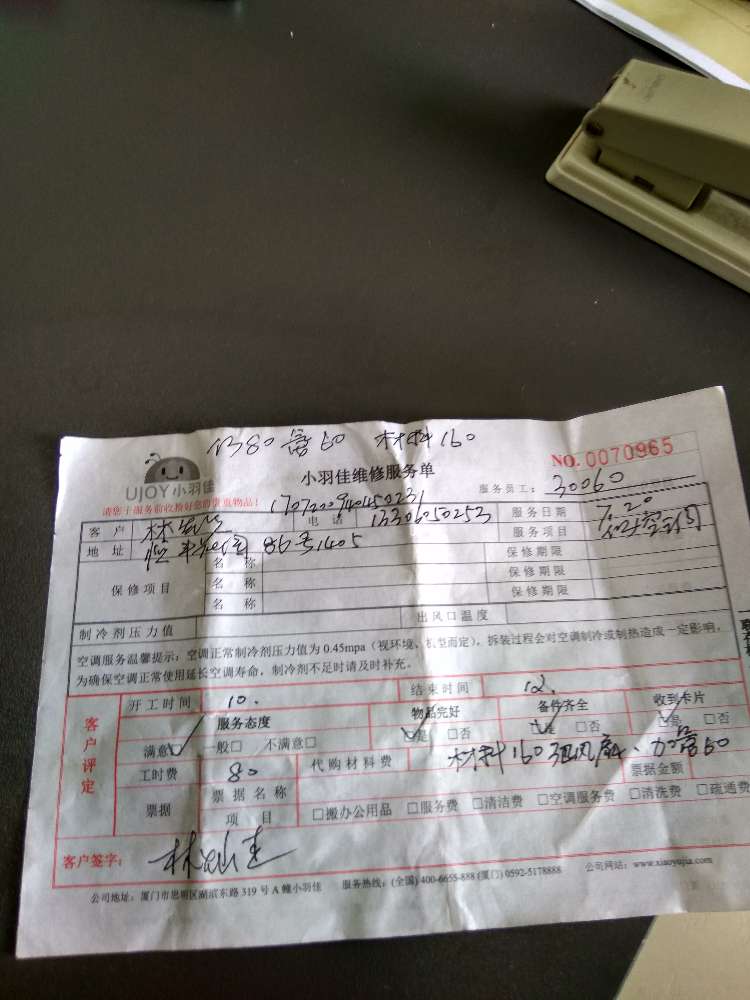 材料160
NO. 0070965
UJOY小羽佳
小羽佳维修服务单
服务员工: 30060
请您于服务前收拾好您的贵重物品!
1707200940450231
客户 电话 13306050253 服务日期 7.20
地址 86号1405 服务项目
保修项目 名称 保修期限
名称 保修期限
名称 保修期限
制冷剂压力值 出风口温度
空调服务温馨提示:空调正常制冷剂压力值为 0.45mpa(视环境、机型而定),拆装过程会对空调制冷或制热造成一定影响,
为确保空调正常使用延长空调寿命,制冷剂不足时请及时补充。
客户评定
开工时间 10. 结束时间 12.
服务态度 物品完好 备件齐全 收到卡片
满意 一般□ 不满意□ 是 □否 是 □否 是 □否
工时费 80 代购材料费 材料160
票据 票据名称 票据金额
项目 □搬办公用品 □服务费 □清洁费 □空调服务费 □清洗费 □疏通费
客户签字:
公司地址:厦门市思明区湖滨东路 319 号 A 幢小羽佳 服务热线:(全国) 400-6655-888 (厦门) 0592-5178888 公司网站:www.xiaoyujia.com